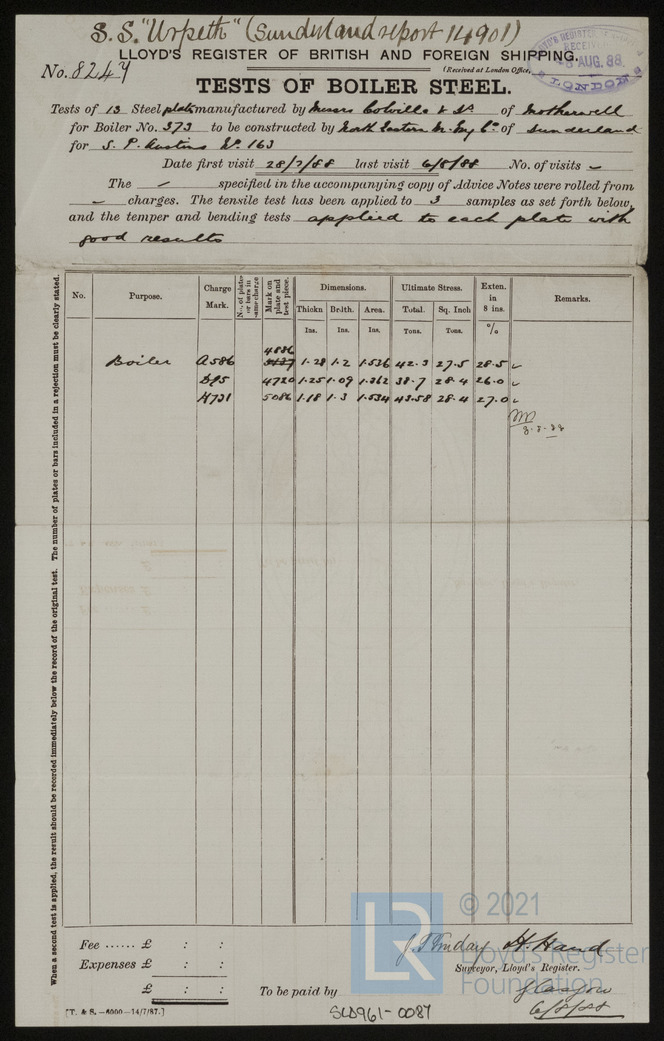 S.S. "Urpeth" (Sunderland report 14901)
LLOYD'S REGISTER OF BRITISH AND FOREIGN SHIPPING.
No. 8247
(Received at London Office,
RECEIVED
8 AUG. 88
LONDON
TESTS OF BOILER STEEL.
Tests of 13 Steel plates manufactured by Messrs Colville & of Motherwell
for Boiler No. 373 to be constructed by North Eastern M. Eng Co. of Sunderland
for S. P. Austins No. 163
Date first visit 28/7/88 last visit 6/8/88 No. of visits
The specified in the accompanying copy of Advice Notes were rolled from
charges. The tensile test has been applied to 3 samples as set forth below,
and the temper and bending tests applied to each plate with
good results
When a second test is applied, the result should be recorded immediately below the record of the original test. The number of plates or bars included in a rejection must be clearly stated.
No. Purpose. Charge Mark. No. of plates or bars in same charge Mark on plate and test piece. Dimensions. Ultimate Stress. Exten. in 8 ins. Remarks.
Thickn Brdth. Area. Total. Sq. Inch
Ins. Ins. Ins. Tons. Tons. %
4886
Boiler A586 1.28 1.2 1.536 42.3 27.5 28.5
4720 1.25 1.09 1.362 38.7 28.4 26.0
H731 5086 1.18 1.3 1.534 43.58 28.4 27.0
Fee ...... £ : :
Expenses £ : :
£ : :
H. Hand
Surveyor, Lloyd's Register.
To be paid by
Glasgow
6/8/88
[T. & S.—6000—14/7/87.]
SLD961-0087
LR
© 2021
Lloyd's Register
Foundation